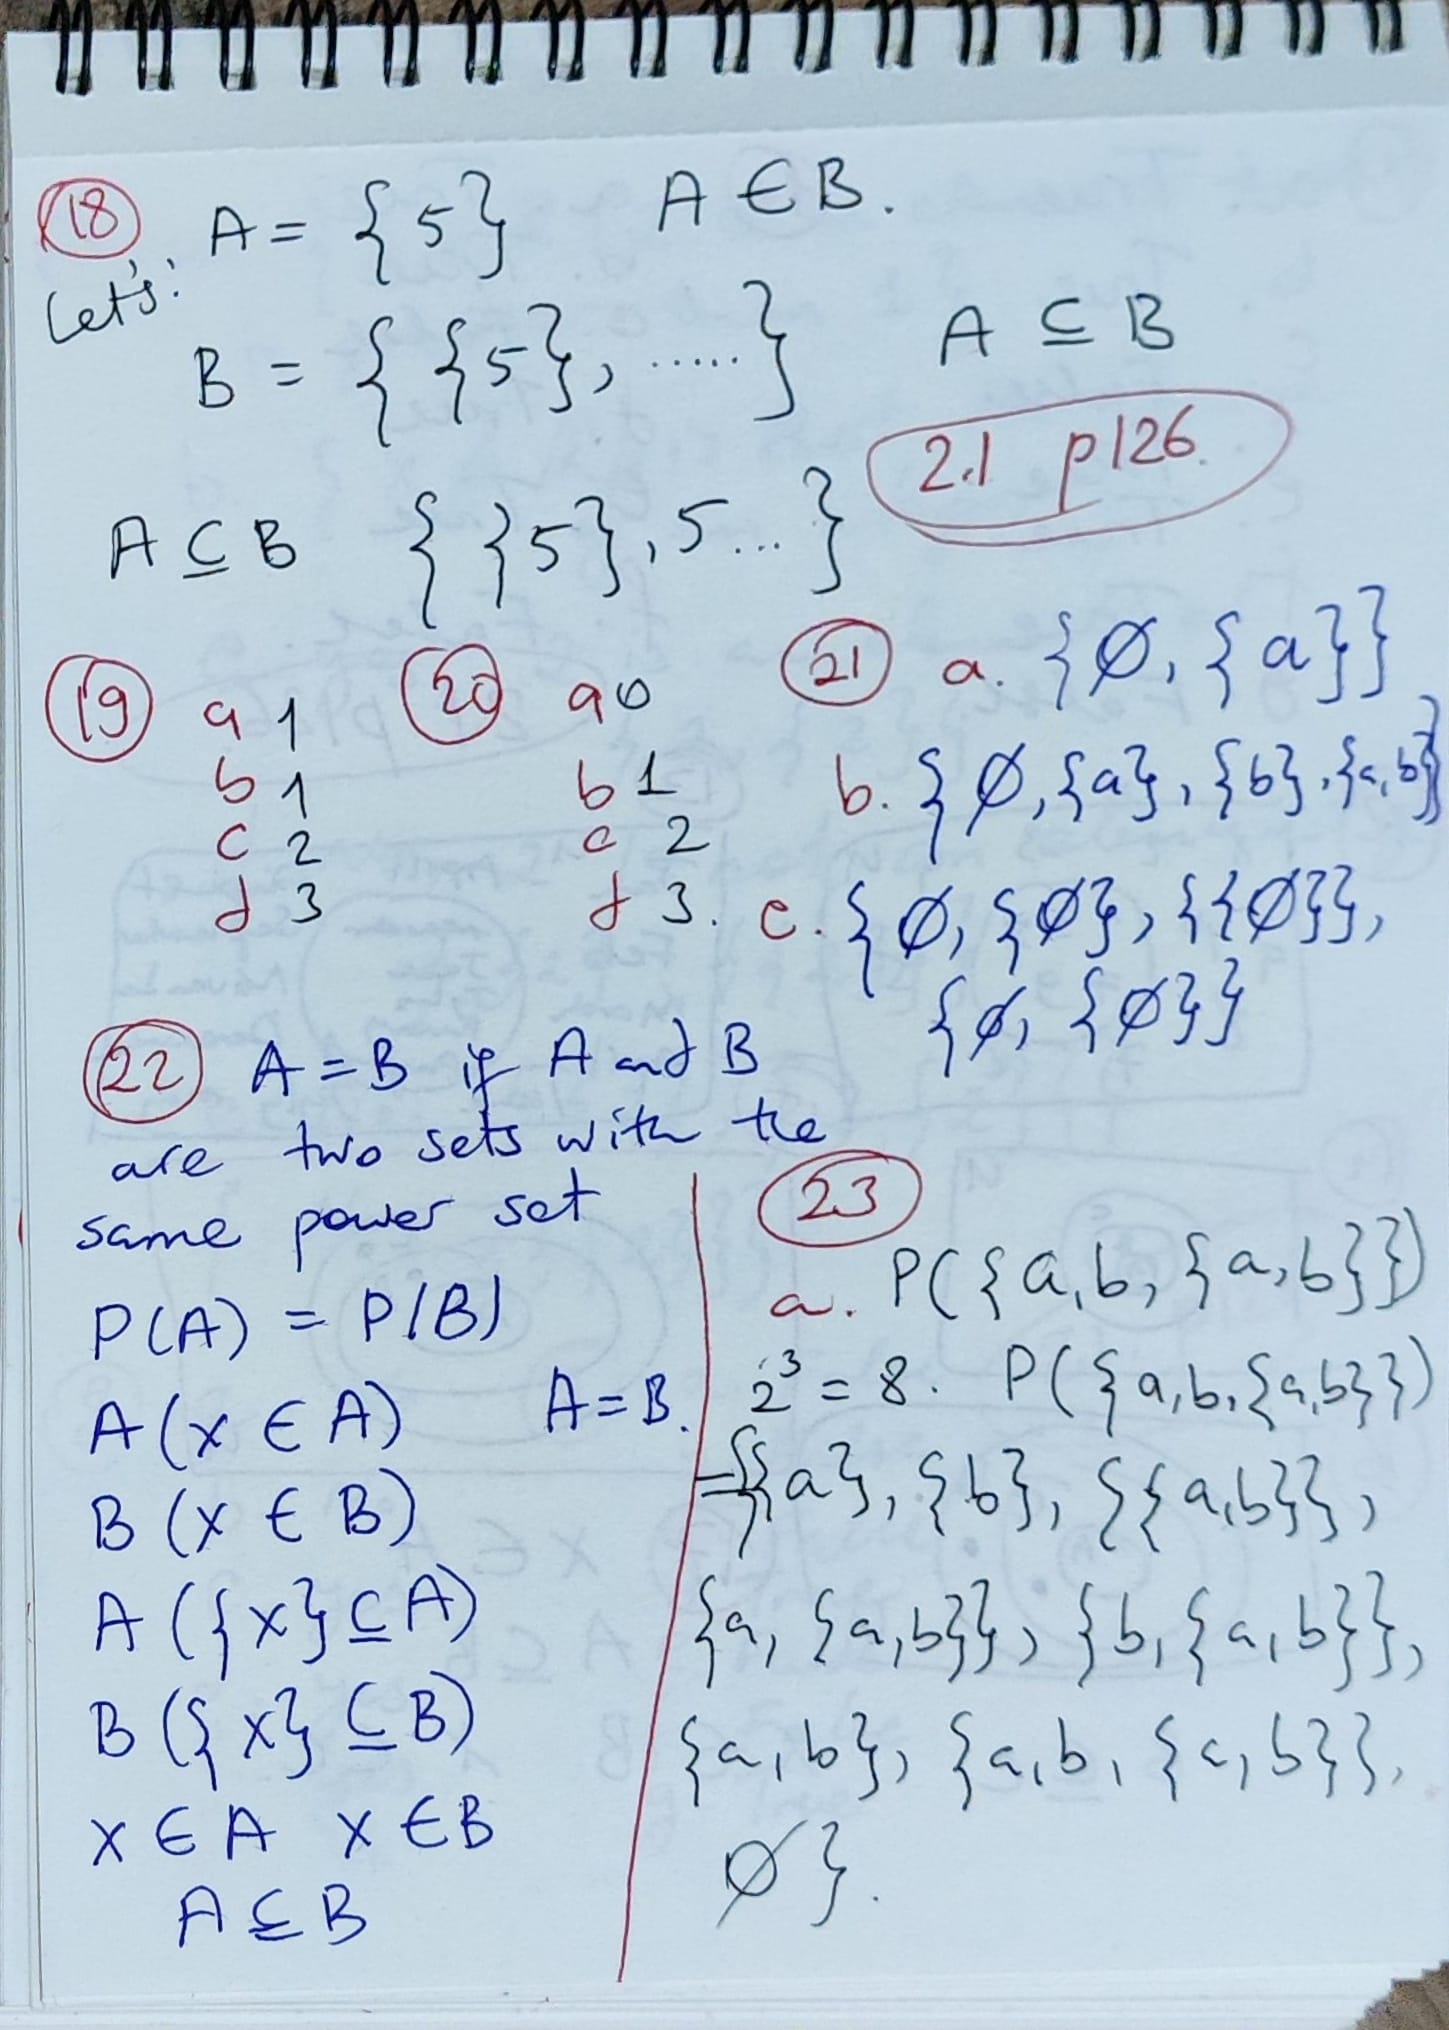 18 A = {5} A ∈ B.
Let's:
B = { {5}, ..... } A ⊆ B
2.1 p126.
A ⊆ B { {5}, 5... }
19 a 1
b 1
c 2
d 3
20 a 0
b 1
c 2
d 3.
21 a. {∅, {a}}
b. {∅, {a}, {b}, {a,b}}
c. {∅, {∅}, {{∅}},
{∅, {∅}}
22 A = B if A and B
are two sets with the
same power set
P(A) = P(B)
A (x ∈ A) A = B.
B (x ∈ B)
A ({x} ⊆ A)
B ({x} ⊆ B)
x ∈ A x ∈ B
A ⊆ B
23
a. P({a,b, {a,b}})
2³ = 8. P({a,b,{a,b}})
= {{a}, {b}, {{a,b}},
{a, {a,b}}, {b, {a,b}},
{a,b}, {a,b, {a,b}},
∅}.